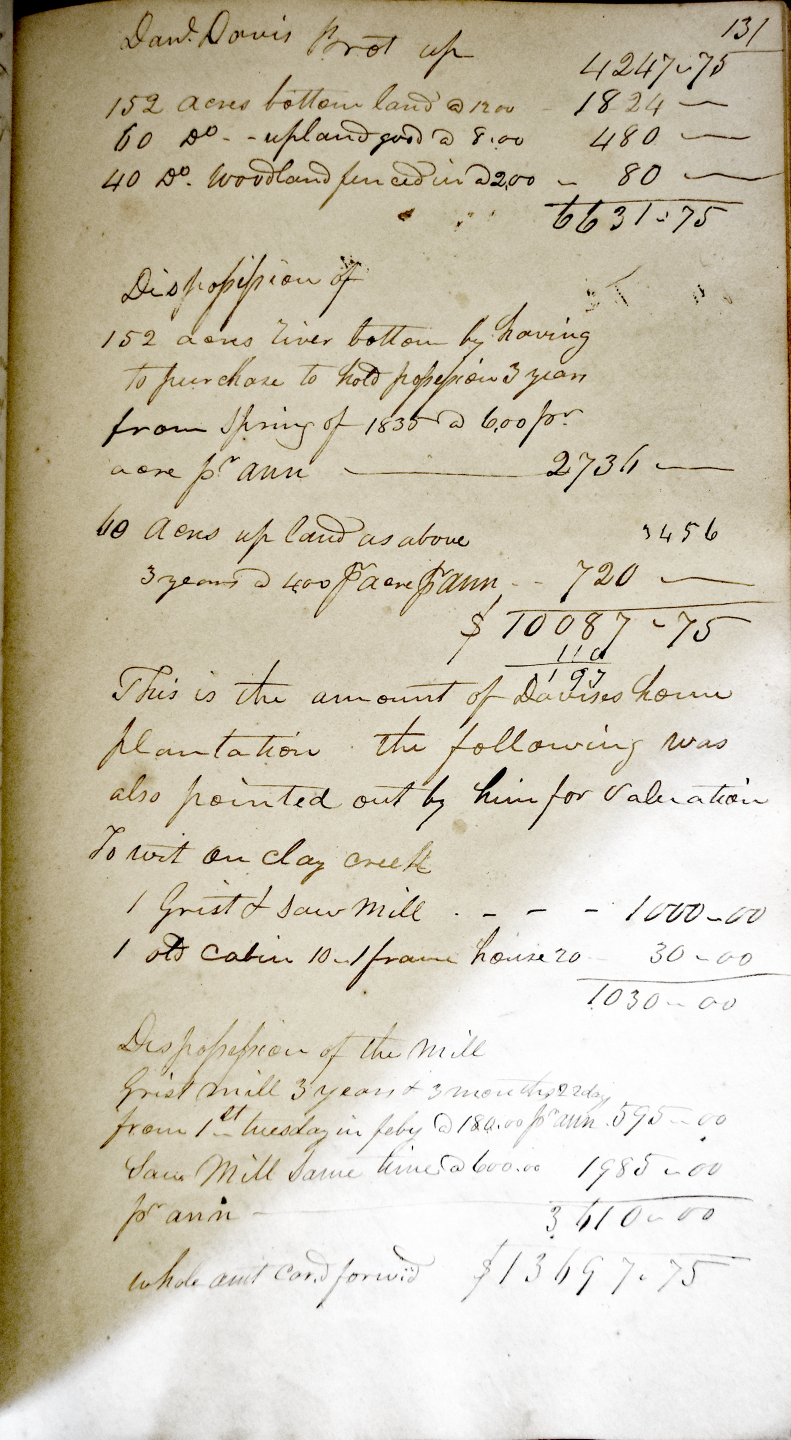 131
Danl. Davis Brot up 4247-75
152 acres bottom land @ 12.00 - 1824 —
60 Do. - - upland good @ 8.00 480 —
40 Do. Woodland fenced in @ 2,00 - 80 —
6631-75
Dispossession of
152 acres river bottom by having
to purchase to hold possession 3 years
from Spring of 1835 @ 6,00 pr.
acre pr ann — 2736 —
60 Acres up land as above 3456
3 years @ 4.00 Pr acre Pr ann - - 720 —
$10087-75
110
197
This is the amount of Davises home
plantation the following was
also pointed out by him for Valuation
To wit on clay creek
1 Grist & Saw Mill - - - 1000-00
1 old Cabin 10-1 frame house 20 30-00
1030-00
Dispossession of the Mill
Grist mill 3 years & 3 months 22 day
from 1st tuesday in feby @ 180.00 pr ann. 595-00
Saw Mill Same time @ 600.00 1985-00
pr ann — 3610-00
whole amt card forwd $13697.75